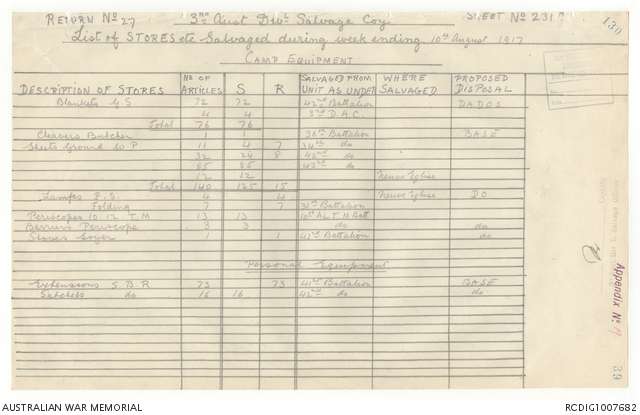 RETURN No 27 3RD Aust Divl Salvage Coy. SHEET No 231A
130
List of STORES etc Salvaged during week ending 10th August 1917
CAMP EQUIPMENT
DESCRIPTION OF STORES No OF ARTICLES S R SALVAGED FROM UNIT AS UNDER WHERE SALVAGED PROPOSED DISPOSAL
Blankets G.S 72 72 42nd Battalion DADOS
4 4 3rd D.A.C.
Total 76 76
Cleavers Butcher 1 1 38th Battalion BASE
Sheets Ground W.P 11 4 7 34th do
32 24 8 42nd do
85 85 43rd do
12 12 Neuve Eglise
Total 140 125 15
Lamps 4 4 Neuve Eglise DO
Folding 7 7 Battalion
Periscopes 10.12 T.M 13 13 10th A.L.T.M Batt do
Periscope 3 3 do do
Stoves Soyer 1 1 41st Battalion do
Personal Equipment
Extensions S.B.R 73 73 41st Battalion BASE
Satchels do 16 16 42nd do do
Appendix No
39
AUSTRALIAN WAR MEMORIAL RCDIG1007682